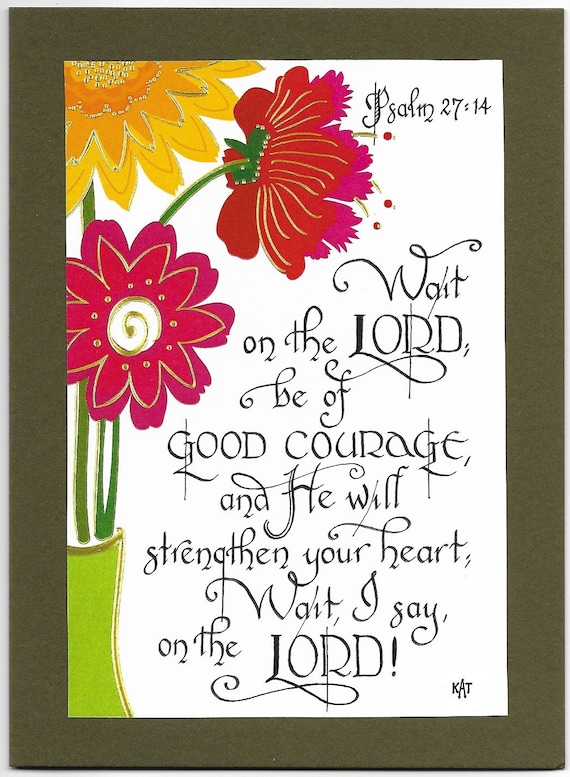 Psalm 27:14
Wait
on the LORD;
be of
GOOD COURAGE,
and He will
strengthen your heart;
Wait, I say,
on the LORD!
KAT